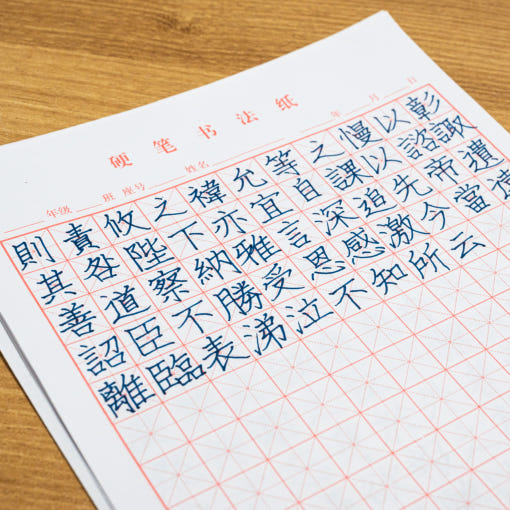 硬笔书法纸
年级 班 座号 姓名 年 月 日
則責攸之禕允等之慢以彰
其咎陛下亦宜自課以諮諏
善道察納雅言深追先帝遺
詔臣不勝受恩感激今當遠
離臨表涕泣不知所云